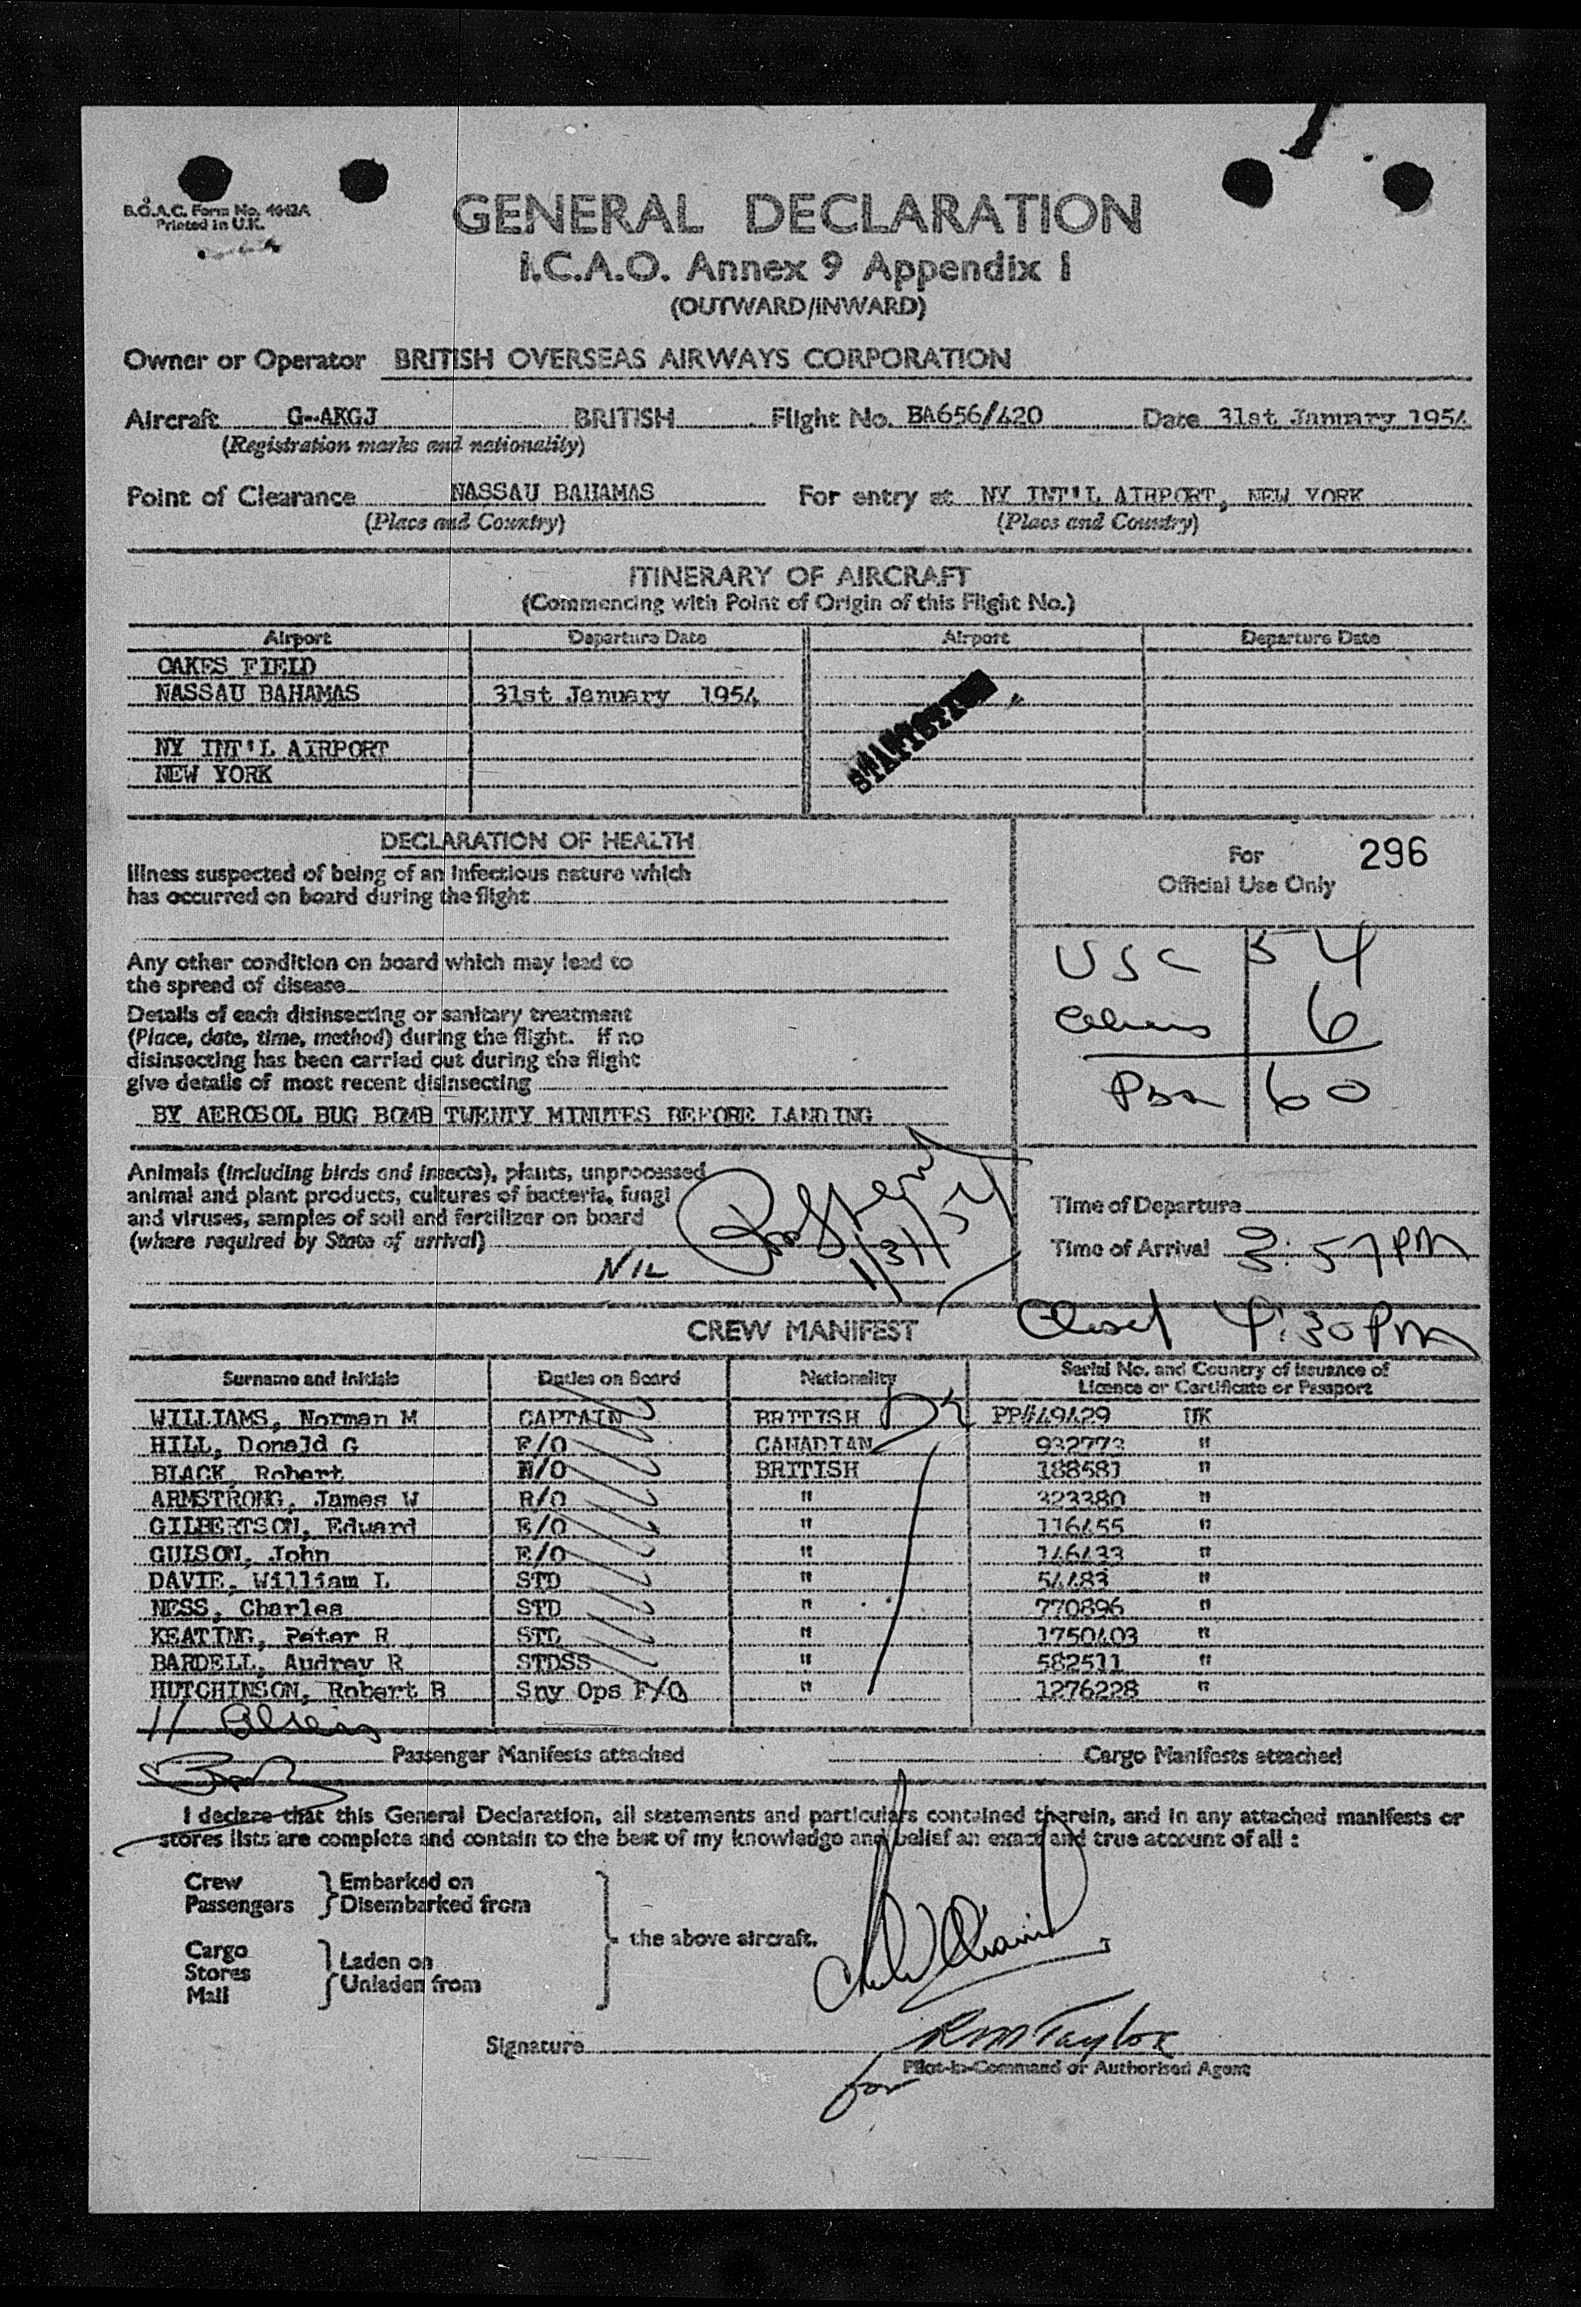 B.O.A.C. Form No. 4642A
Printed in U.K.
GENERAL DECLARATION
I.C.A.O. Annex 9 Appendix I
(OUTWARD/INWARD)
Owner or Operator BRITISH OVERSEAS AIRWAYS CORPORATION
Aircraft G-AKGJ BRITISH Flight No. BA656/420 Date 31st January 1954
(Registration marks and nationality)
Point of Clearance NASSAU BAHAMAS For entry at NY INT'L AIRPORT, NEW YORK
(Place and Country) (Place and Country)
ITINERARY OF AIRCRAFT
(Commencing with Point of Origin of this Flight No.)
Airport Departure Date Airport Departure Date
OAKES FIELD
NASSAU BAHAMAS 31st January 1954
NY INT'L AIRPORT
NEW YORK
DECLARATION OF HEALTH
Illness suspected of being of an infectious nature which
has occurred on board during the flight
Any other condition on board which may lead to
the spread of disease
Details of each disinsecting or sanitary treatment
(Place, date, time, method) during the flight. If no
disinsecting has been carried out during the flight
give details of most recent disinsecting
BY AEROSOL BUG BOMB TWENTY MINUTES BEFORE LANDING
For 296
Official Use Only
USC 54
Aliens 6
60
Animals (including birds and insects), plants, unprocessed
animal and plant products, cultures of bacteria, fungi
and viruses, samples of soil and fertilizer on board
(where required by State of arrival)
NIL
1/31/54
Time of Departure
Time of Arrival 3:57 PM
Closed 4:30 PM
CREW MANIFEST
Surname and Initials Duties on Board Nationality Serial No. and Country of Issuance of
Licence or Certificate or Passport
WILLIAMS, Norman M CAPTAIN BRITISH PP#49429 UK
HILL, Donald G F/O CANADIAN 932773 "
BLACK, Robert N/O BRITISH 188581 "
ARMSTRONG, James W R/O " 323380 "
GILBERTSON, Edward E/O " 116455 "
GUISON, John E/O " 146433 "
DAVIE, William L STD " 54483 "
NESS, Charles STD " 770896 "
KEATING, Peter R STD " 1750403 "
BARDELL, Audrey R STDSS " 582511 "
HUTCHINSON, Robert B Sny Ops F/O " 1276228 "
11 Aliens
Passenger Manifests attached Cargo Manifests attached
I declare that this General Declaration, all statements and particulars contained therein, and in any attached manifests or
stores lists are complete and contain to the best of my knowledge and belief an exact and true account of all :
Crew Embarked on
Passengers Disembarked from
the above aircraft.
Cargo
Stores Laden on
Mail Unladen from
Signature RM Taylor
for Pilot-in-Command or Authorised Agent